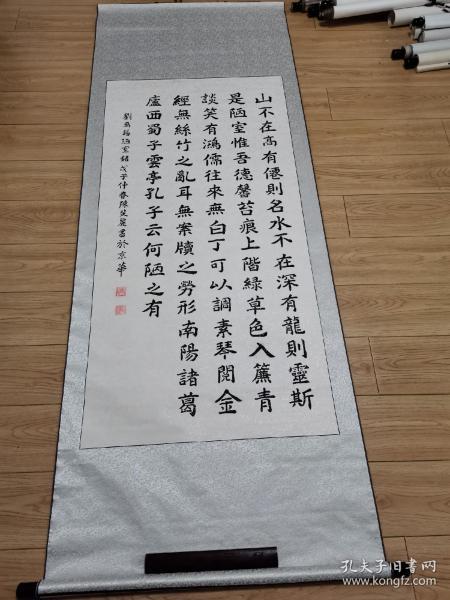 山不在高有僊則名水不在深有龍則靈斯
是陋室惟吾德馨苔痕上階綠草色入簾青
談笑有鴻儒往來無白丁可以調素琴閱金
經無絲竹之亂耳無案牘之勞形南陽諸葛
廬西蜀子雲亭孔子云何陋之有
劉禹錫陋室銘戊子仲春陳芝麗書於京華
孔夫子旧书网
www.kongfz.com